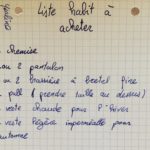 Liste habit à
acheter
chemise
ou 2 pantalon
ou 2 brassière à bretel fine
pull (prendre taille au dessus)
veste chaude pour l'hiver
veste légère imperméable pour
automne